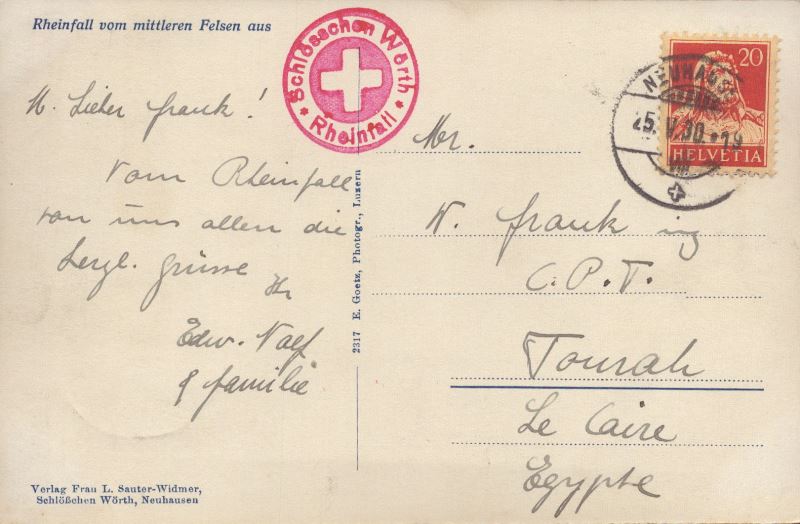 Rheinfall vom mittleren Felsen aus
Schlösschen Wörth
Rheinfall
M. Lieber Frank!
Vom Rheinfall
von uns allen die
herzl. Grüsse
Ihr
Edw. Naef
& familie
Verlag Frau L. Sauter-Widmer,
Schlößchen Wörth, Neuhausen
2317 E. Goetz, Photogr., Luzern
20
HELVETIA
NEUHAUS
25. V. 30. 19
VIII
Mr.
W. Frank ing
C.P.T.
Tourah
Le Caire
Egypte